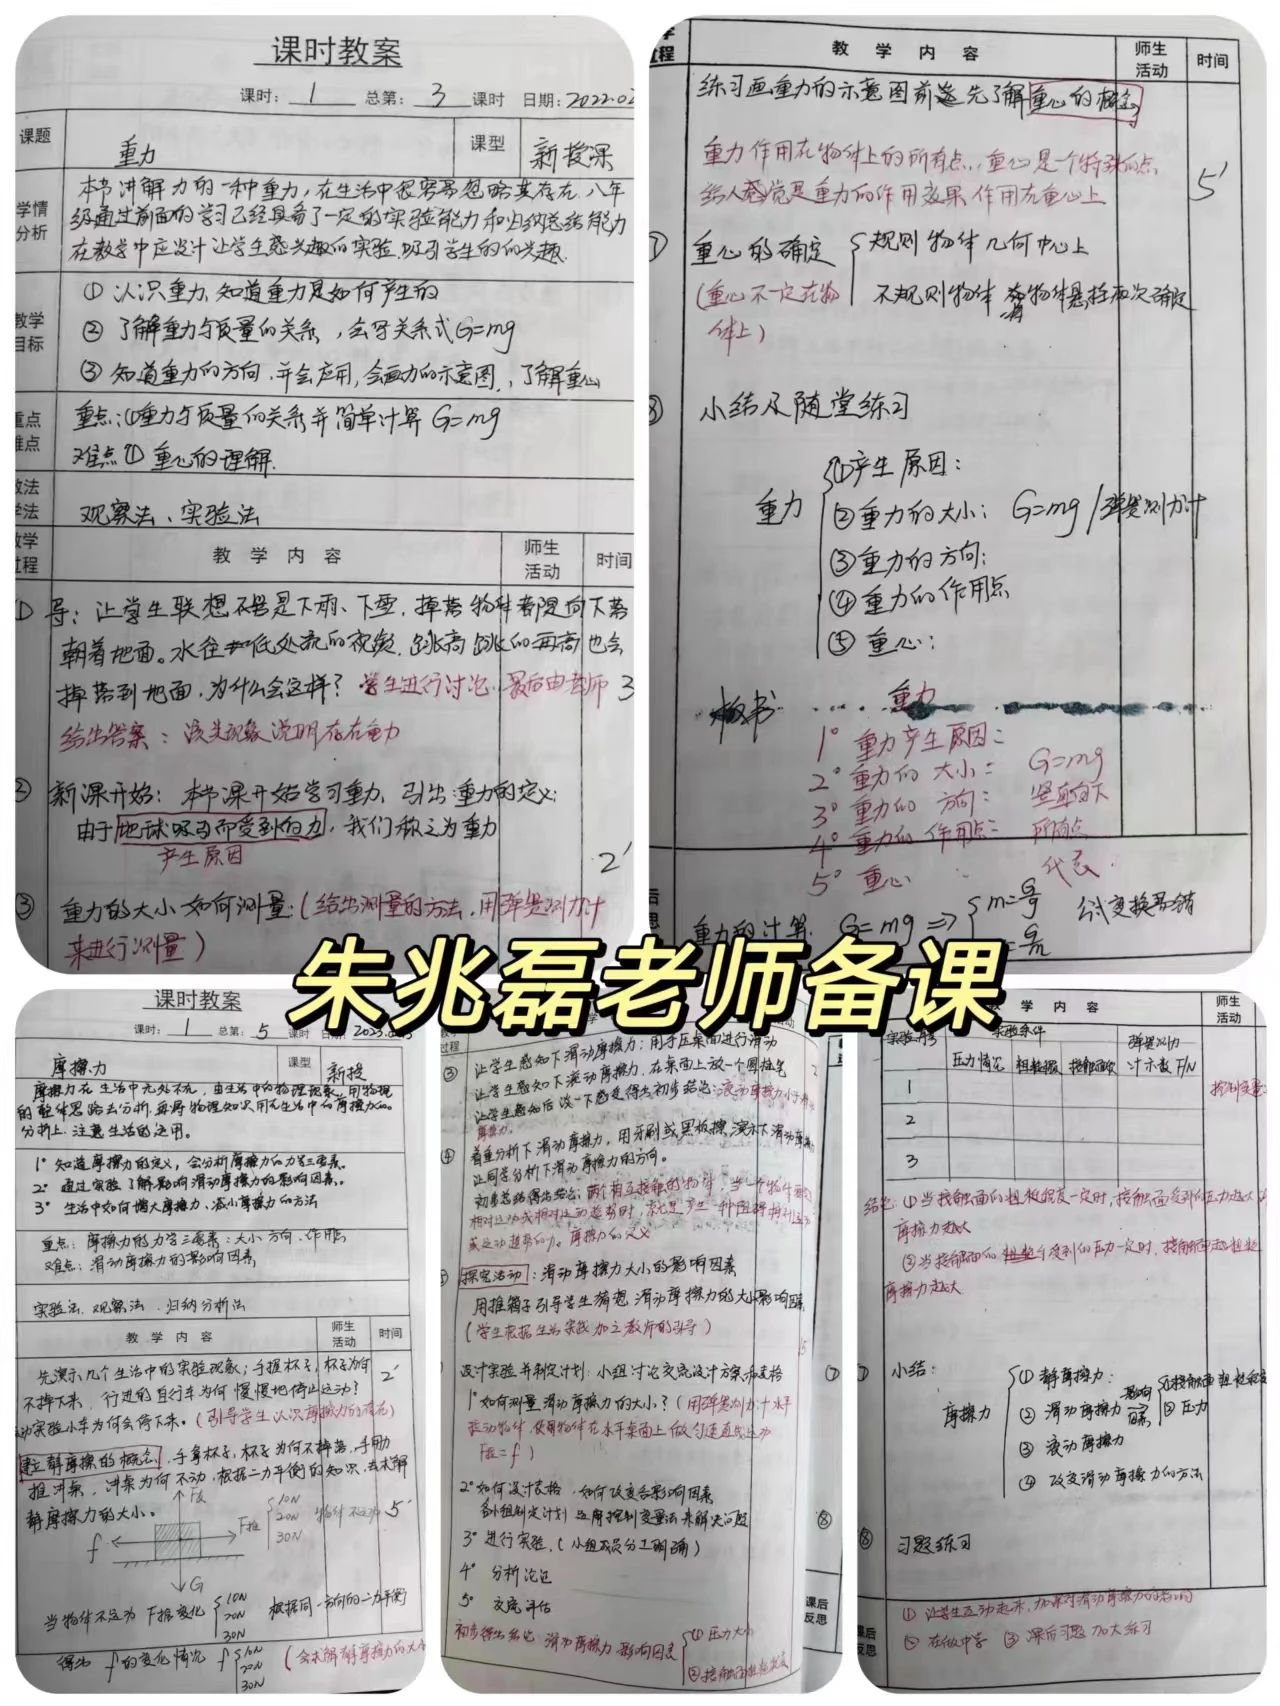 课时教案
课时: 1 总第: 3 课时 日期: 2022.02
课题 重力 课型 新授课
学情分析
本节讲解力的一种重力,在生活中很容易忽略其存在.八年
级通过前面的学习已经具备了一定的实验能力和归纳总结能力
在教学中应设计让学生感兴趣的实验.吸引学生的的兴趣.
教学目标
① 认识重力,知道重力是如何产生的
② 了解重力与质量的关系,会写关系式G=mg
③ 知道重力的方向.并会应用,会画力的示意图,了解重心
重点难点
重点:①重力与质量的关系并简单计算 G=mg
难点① 重心的理解.
教法学法 观察法、实验法
教学过程 教学内容 师生活动 时间
① 导:让学生联想不管是下雨、下雪,掉落物体都是向下落
朝着地面。水往低处流的视频.跳高跳的再高也会
掉落到地面.为什么会这样? 学生进行讨论.最后由老师 3
给出答案:该类现象说明存在重力
② 新课开始:本节课开始学习重力,引出重力的定义:
由于地球吸引而受到的力,我们称之为重力
产生原因 2'
③ 重力的大小如何测量:(给出测量的方法,用弹簧测力计
来进行测量)
过程 教学内容 师生活动 时间
练习画重力的示意图前 先了解重心的概念
重力作用在物体上的所有点,重心是一个特殊的点 5'
给人感觉是重力的作用效果作用在重心上
⑦ 重心的确定 规则物体几何中心上
(重心不一定在物 不规则物体 物体悬挂两次确定
体上)
⑧ 小结及随堂练习
重力
①产生原因:
②重力的大小: G=mg/弹簧测力计
③重力的方向:
④重力的作用点
⑤重心:
板书 重力
1° 重力产生原因:
2° 重力的大小: G=mg
3° 重力的方向: 竖直向下
4° 重力的作用点: 所有点
5° 重心
重力的计算. G=mg ⇒ 公式变换易错
朱兆磊老师备课
课时教案
课时: 1 总第: 5 课时
摩擦力 课型 新授
摩擦力在生活中无处不在,由生活中的物理现象.用物理
的整体思路去分析.再将物理知识用在生活中的摩擦力的。
分析上.注意生活的运用。
1° 知道摩擦力的定义,会分析摩擦力的力学三要素.
2° 通过实验了解影响滑动摩擦力的影响因素.
3° 生活中如何增大摩擦力、减小摩擦力的方法
重点:摩擦力的力学三要素:大小.方向.作用点
难点:滑动摩擦力的影响因素
实验法.观察法.归纳分析法
教学内容 师生活动 时间
先演示几个生活中的实验现象;手握杯子,杯子为何 2'
不掉下来.行进的自行车为何慢慢地停止运动?
实验小车为何会停下来。(引导学生认识摩擦力的存在)
建立静摩擦的概念,手拿杯子,杯子为何不掉落,手用力
推讲桌,讲桌为何不动,根据二力平衡的知识,去求解
静摩擦力的大小。
F支
10N
20N
30N
5'
f F推
G
当物体不运动 F推变化 10N 20N 30N 根据同一方向的二力平衡
得出 f的变化情况 f 10N 20N 30N
过程
③ 让学生感知下滑动摩擦力:用手压桌面进行滑动
让学生感知下滚动摩擦力.在桌面上放一个圆柱笔 2
让学生感知后谈一下感受得出初步结论:滚动摩擦力小于滑动
摩擦力.
④ 着重分析下滑动摩擦力,用牙刷或黑板擦演示下滑动摩擦
让同学分析下滑动摩擦力的方向。
探究活动:滑动摩擦力大小的影响因素
用推箱子引导学生猜想滑动摩擦力的大小影响因素
(学生根据生活实践加之教师的引导)
设计实验并制定计划:小组讨论交流设计方案和表格
1° 如何测量滑动摩擦力的大小?(用弹簧测力计水平
拉动物体,使得物体在水平桌面上做匀速直线运动
F拉=f)
2° 如何设计表格,如何改变各影响因素
各小组制定计划运用控制变量法来解决问题
3° 进行实验.(小组成员分工明确)
4° 分析论证
5° 交流评估
初步得出结论:滑动摩擦力影响因素 ①压力大小
课后反思
教学内容 师生活动
实验序号 实验条件 弹簧测力
压力情况 粗糙程度 接触面积 计示数F/N
1
2
3
结论:①当接触面的粗糙程度一定时,接触面受到的压力越大
摩擦力越大
②当接触面受到的压力一定时,接触面越粗糙
摩擦力越大
小结:
摩擦力
① 静摩擦力:
② 滑动摩擦力 影响因素 ②压力
③ 滚动摩擦力
④ 改变滑动摩擦力的方法
⑧ 习题练习
课后反思
② 在做中学 ③ 课后习题加大练习